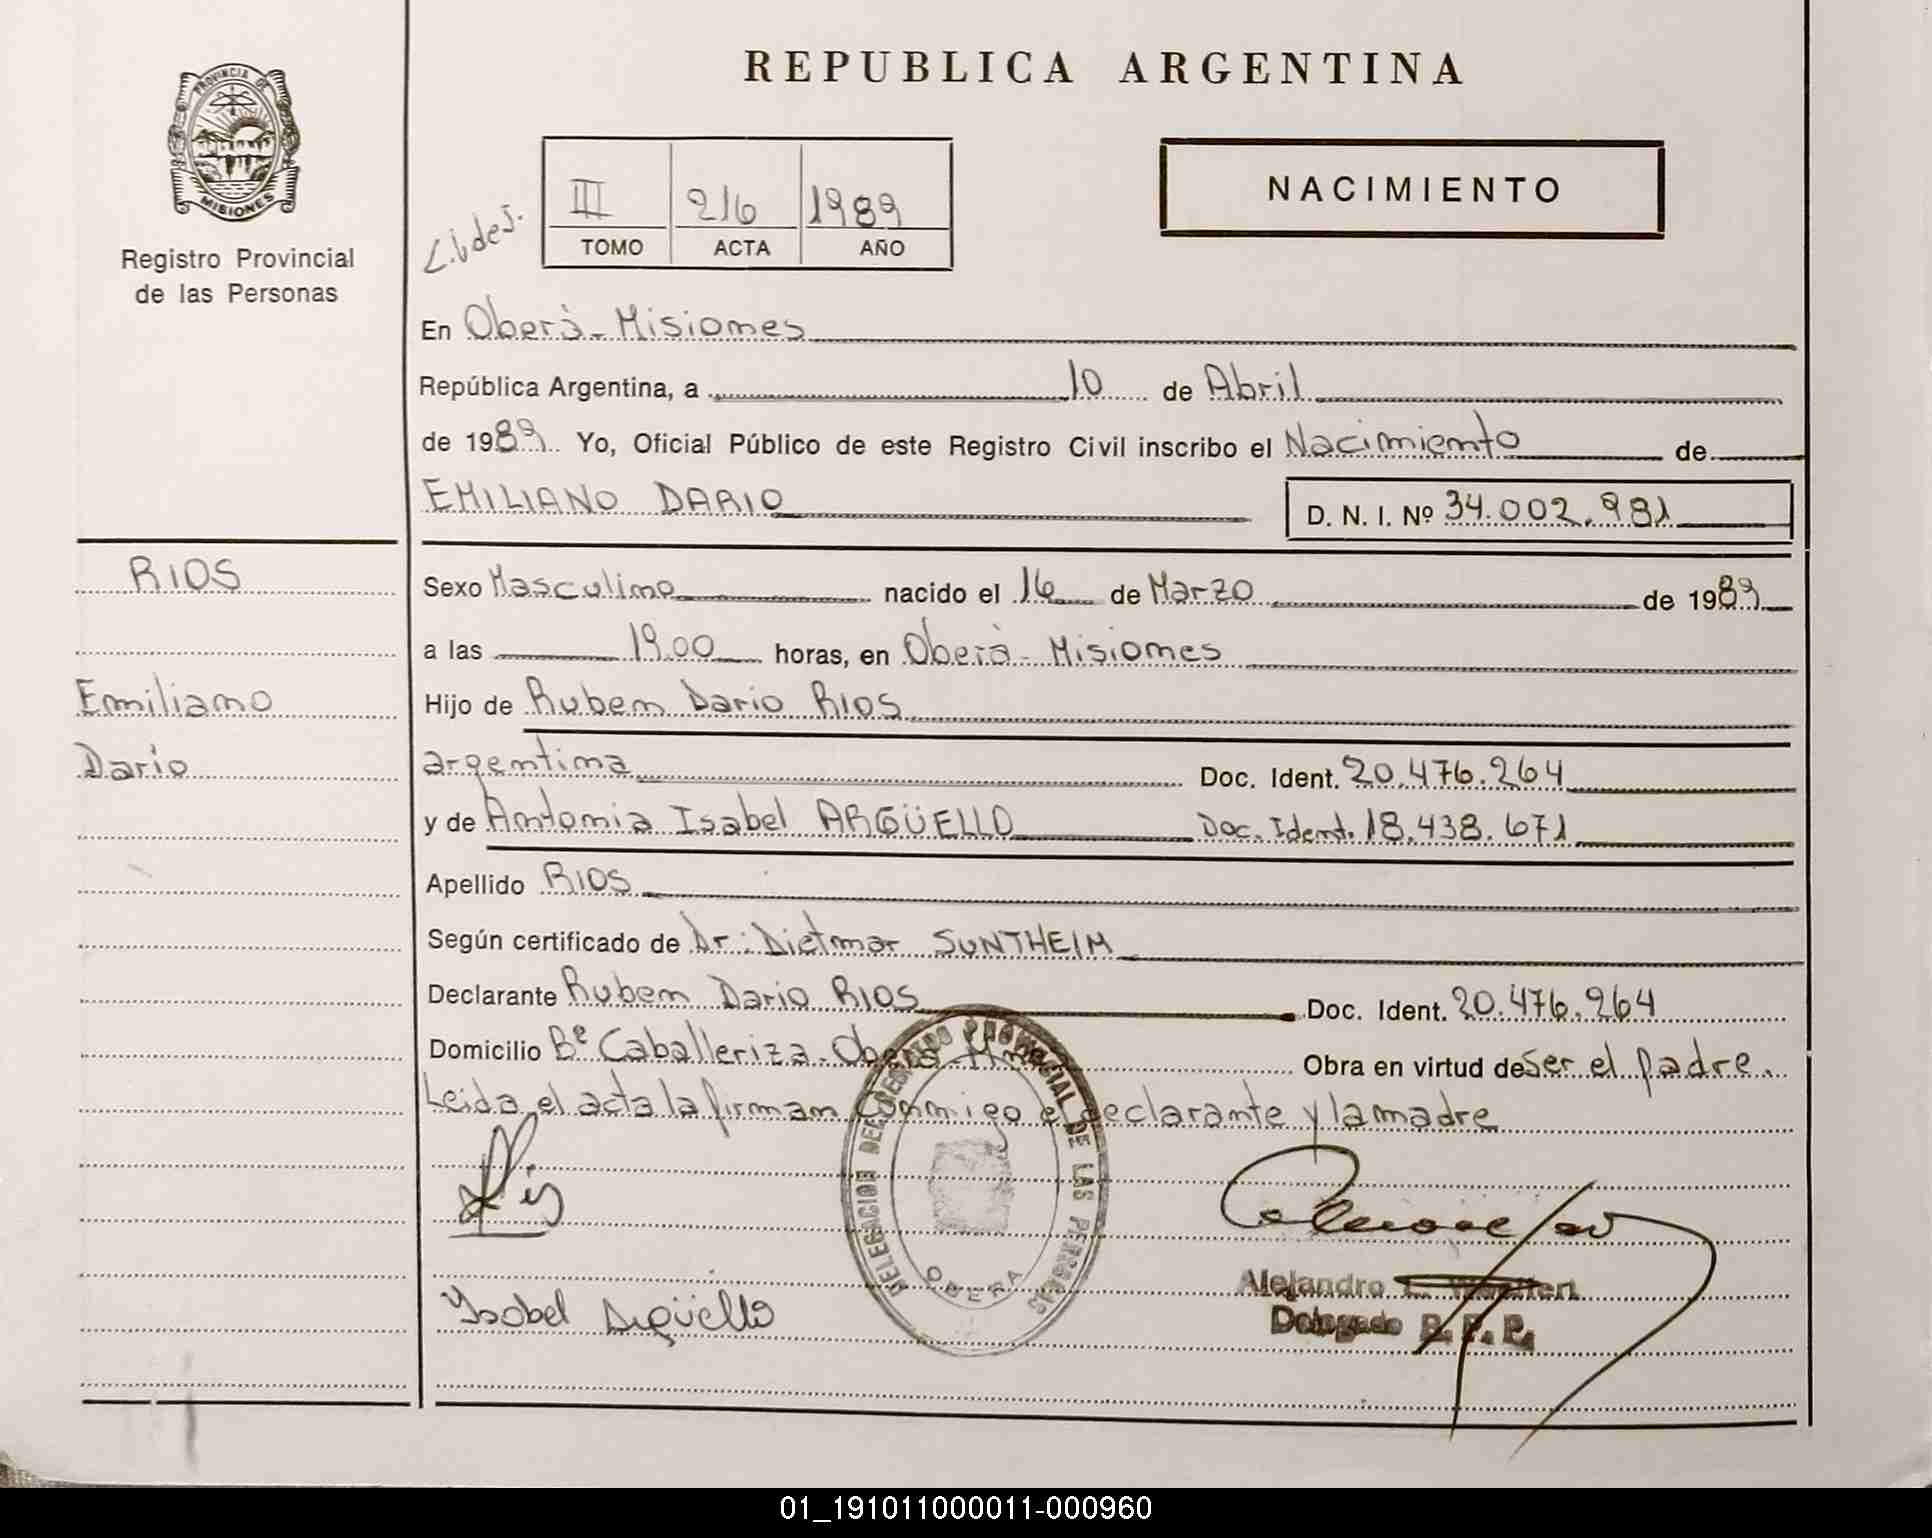 REPUBLICA ARGENTINA
PROVINCIA DE
MISIONES
Registro Provincial
de las Personas
III 216 1989
TOMO ACTA AÑO
NACIMIENTO
En Oberà - Misiones
República Argentina, a 10 de Abril
de 1989 Yo, Oficial Público de este Registro Civil inscribo el Nacimiento de
EMILIANO DARIO D. N. I. Nº 34.002.981
RIOS
Emiliano
Dario
Sexo Masculino nacido el 16 de Marzo de 1989
a las 19.00 horas, en Oberà - Misiones
Hijo de Ruben Dario RIOS
argentina Doc. Ident. 20.476.264
y de Antonia Isabel ARGÜELLO Doc. Ident. 18.438.671
Apellido RIOS
Según certificado de Dr. Dietmar SUNTHEIM
Declarante Ruben Dario RIOS Doc. Ident. 20.476.264
Domicilio Bº Caballeriza - Oberà - Mnes Obra en virtud de Ser el padre.
Leida el acta la firman conmigo el declarante y la madre
DELEGACION DEL REGISTRO PROVINCIAL DE LAS PERSONAS
OBERA
Isabel Argüello
Alejandro
Delegado R. P. P.
01_191011000011-000960